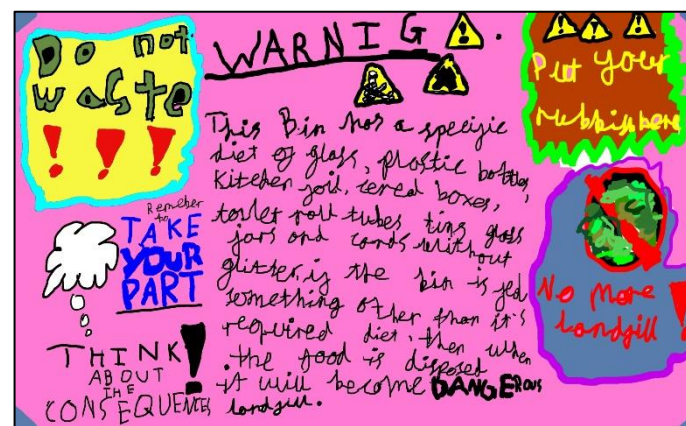 Do not
waste
!!!
WARNIG
Put your
rubbish here
This Bin has a specific
diet of glass, plastic bottles,
kitchen foil, cereal boxes,
toilet roll tubes tins glass
jars and cards without
glitter, if the bin is fed
something other than it's
required diet, then when
the food is disposed
it will become DANGEROUS
landfill.
Remember
to
TAKE
YOUR
PART
THINK
ABOUT
THE
CONSEQUENCES!
No More
landfill!